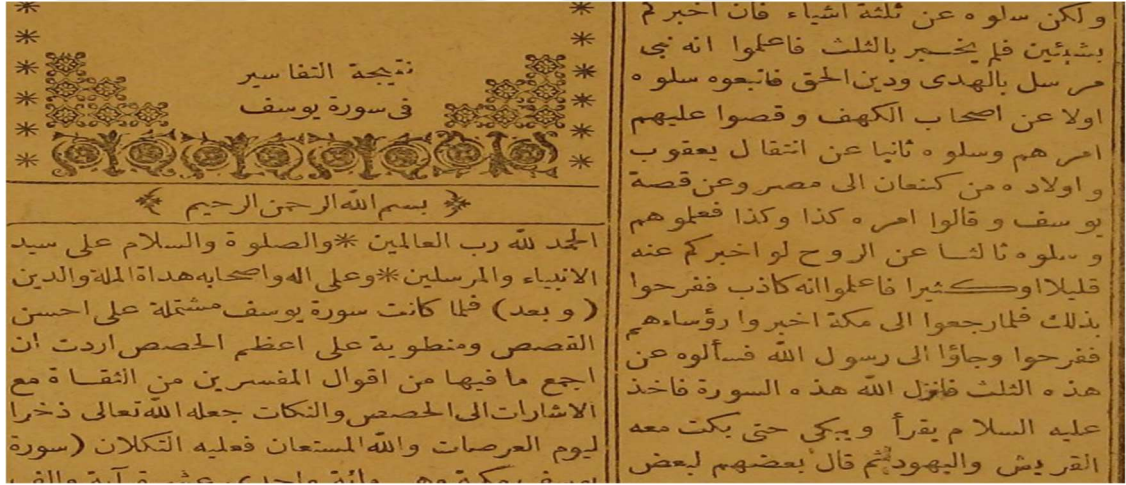 ولكن سلوه عن ثلثة اشياء فان اخبركم
بشيئين فلم يخبر بالثلث فاعلموا انه نبى
مرسل بالهدى ودين الحق فاتبعوه سلوه
اولا عن اصحاب الكهف وقصوا عليهم
امرهم وسلوه ثانيا عن انتقال يعقوب
واولاده من كنعان الى مصر وعن قصة
يوسف وقالوا امره كذا وكذا فعلموهم
وسلوه ثالثا عن الروح لو اخبركم عنه
قليلا اوكثيرا فاعلموا انه كاذب ففرحوا
بذلك فلما رجعوا الى مكة اخبروا رؤساءهم
ففرحوا وجاؤا الى رسول الله فسألوه عن
هذه الثلث فانزل الله هذه السورة فاخذ
عليه السلام يقرأ ويبكى حتى بكت معه
القريش واليهود ثم قال بعضهم لبعض
نتيجة التفاسير
فى سورة يوسف
بسم الله الرحمن الرحيم
الحمد لله رب العالمين * والصلوة والسلام على سيد
الانبياء والمرسلين * وعلى اله واصحابه هداة الملة والدين
(وبعد) فلما كانت سورة يوسف مشتملة على احسن
القصص ومنطوية على اعظم الحصص اردت ان
اجمع ما فيها من اقوال المفسرين من الثقاة مع
الاشارات الى الحصص والنكات جعله الله تعالى ذخرا
ليوم العرصات والله المستعان فعليه التكلان (سورة
يوسف مكية وهى مائة واحدى عشرة آية والف